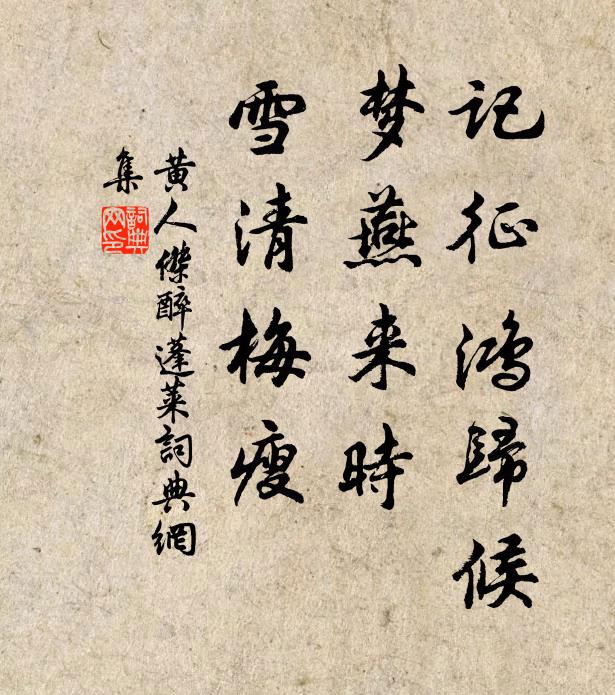 记征鸿歸候
梦燕来時
雪清梅瘦
黄人傑醉蓬萊詞典網
集
詞典
网印